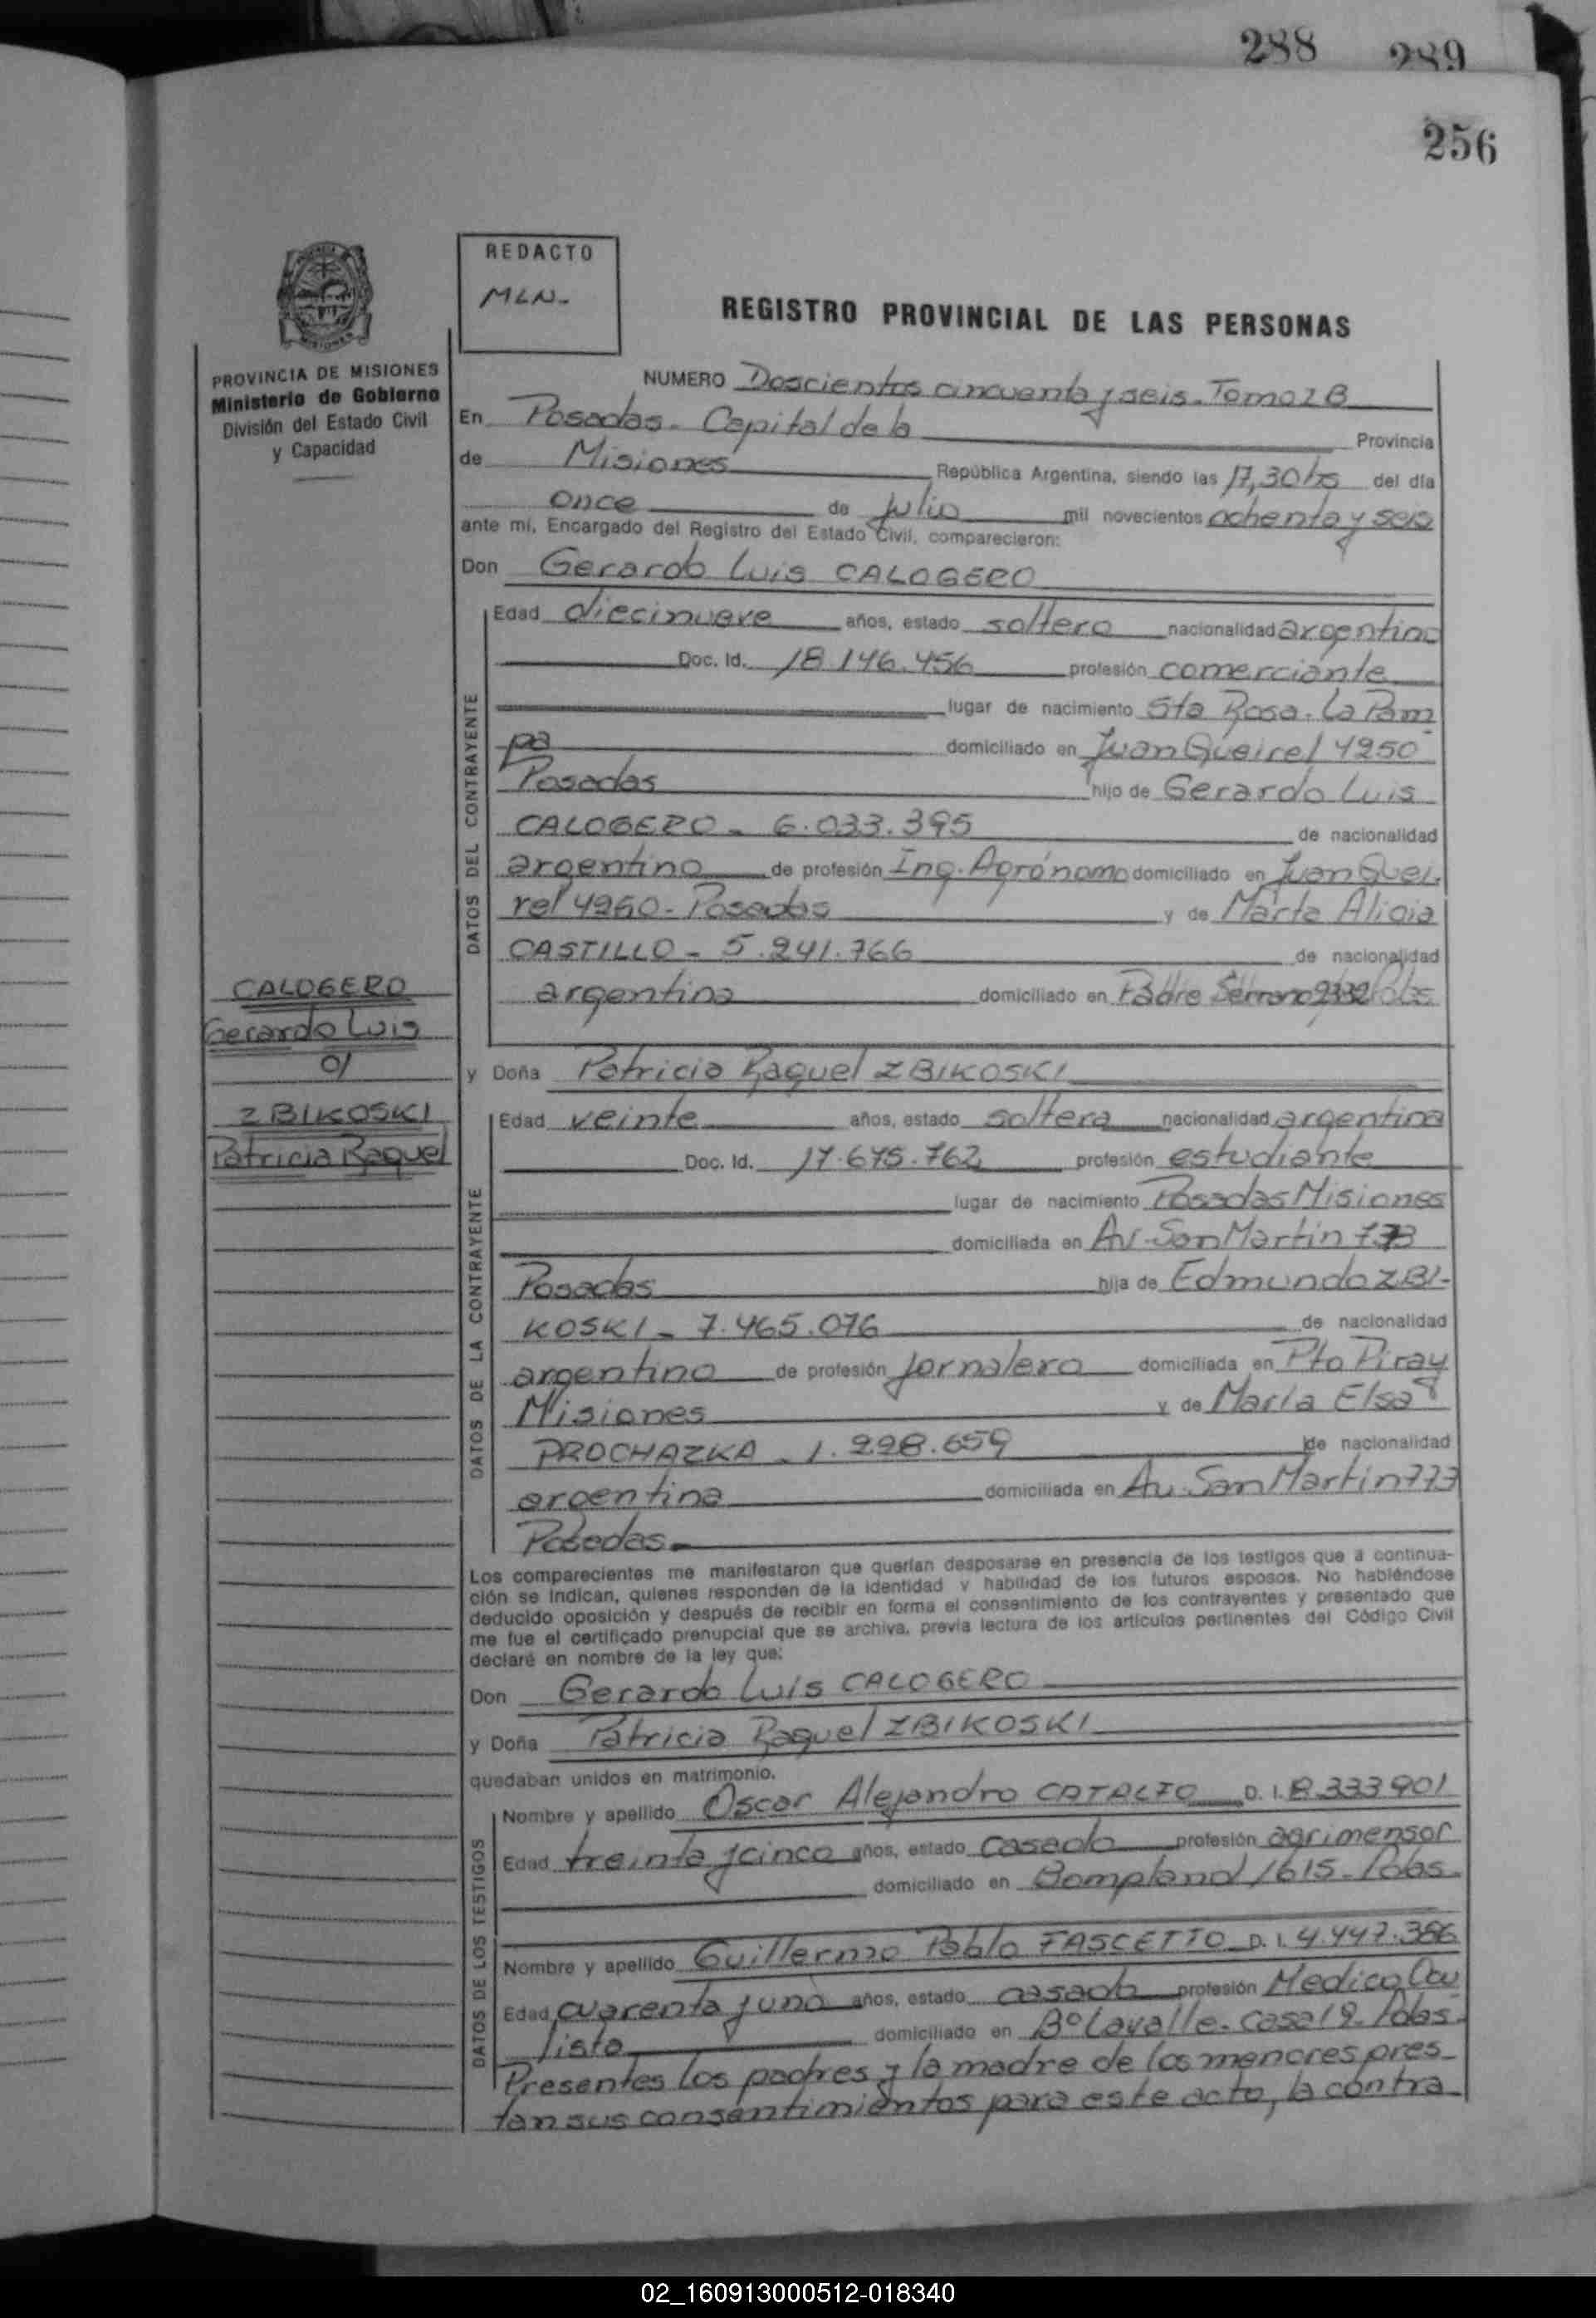 288 289
256
REDACTO
MLN-
REGISTRO PROVINCIAL DE LAS PERSONAS
PROVINCIA DE MISIONES
Ministerio de Gobierno
División del Estado Civil
y Capacidad
NUMERO Doscientos cincuenta y seis - Tomo 2 B
En Posadas - Capital de la Provincia
de Misiones República Argentina, siendo las 17,30 hs del día
once de julio mil novecientos ochenta y seis
ante mí, Encargado del Registro del Estado Civil, comparecieron:
Don Gerardo Luis CALOGERO
DATOS DEL CONTRAYENTE
Edad diecinueve años, estado soltero nacionalidad argentino
Doc. Id. 18.146.456 profesión comerciante
lugar de nacimiento Sta Rosa - La Pam
pa domiciliado en Juan Queirel 4250
Posadas hijo de Gerardo Luis
CALOGERO - 6.033.395 de nacionalidad
argentino de profesión Ing. Agrónomo domiciliado en Juan Quei
rel 4250 - Posadas y de Marta Alicia
CASTILLO - 5.241.766 de nacionalidad
argentina domiciliado en Padre Serrano 2332 Pdas
CALOGERO
Gerardo Luis
c/
ZBIKOSKI
Patricia Raquel
y Doña Patricia Raquel ZBIKOSKI
DATOS DE LA CONTRAYENTE
Edad veinte años, estado soltera nacionalidad argentina
Doc. Id. 17.675.762 profesión estudiante
lugar de nacimiento Posadas Misiones
domiciliada en Av. San Martin 773
Posadas hija de Edmundo ZBI-
KOSKI - 7.465.076 de nacionalidad
argentino de profesión jornalero domiciliada en Pto Piray
Misiones y de María Elsa
PROCHAZKA - 1.228.659 de nacionalidad
argentina domiciliada en Av. San Martin 773
Posadas -
Los comparecientes me manifestaron que querían desposarse en presencia de los testigos que a continua-
ción se indican, quienes responden de la identidad y habilidad de los futuros esposos. No habiéndose
deducido oposición y después de recibir en forma el consentimiento de los contrayentes y presentado que
me fue el certificado prenupcial que se archiva, previa lectura de los artículos pertinentes del Código Civil
declaré en nombre de la ley que:
Don Gerardo Luis CALOGERO
y Doña Patricia Raquel ZBIKOSKI
quedaban unidos en matrimonio.
DATOS DE LOS TESTIGOS
Nombre y apellido Oscar Alejandro D. I. 8.333.901
Edad treinta y cinco años, estado casado profesión agrimensor
domiciliado en Bompland 1615 - Pdas.
Nombre y apellido Guillermo Pablo FASCETTO D. I. 4.447.386
Edad cuarenta y uno años, estado casado profesión Medico Ocu
lista domiciliado en Bº Lavalle - Casa 12 - Pdas.
Presentes los padres y la madre de los menores pres-
tan sus consentimientos para este acto, la contra
02_160913000512-018340